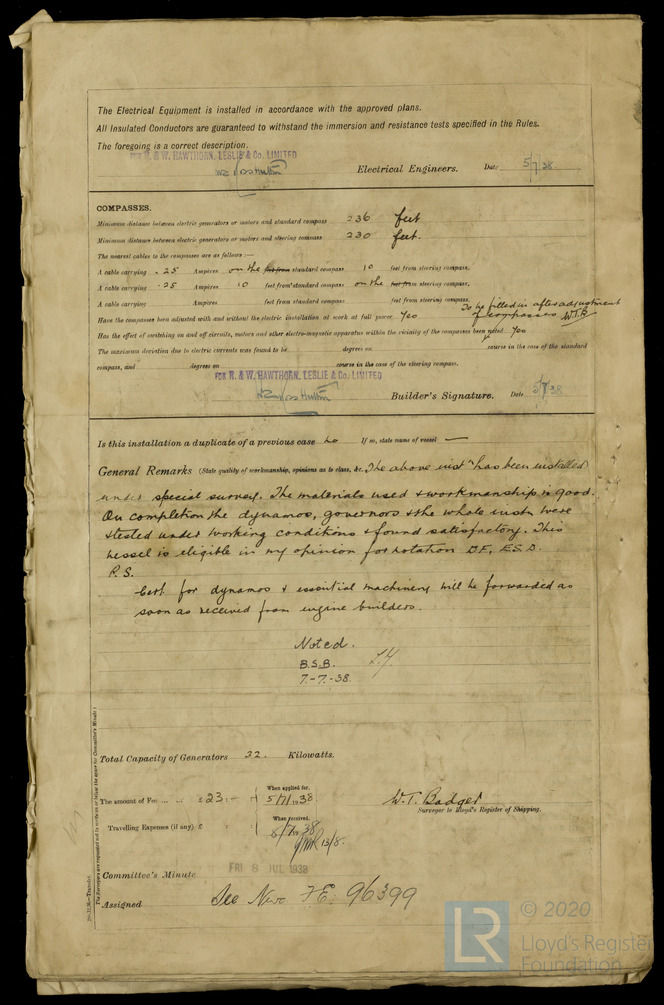 The Electrical Equipment is installed in accordance with the approved plans.
All Insulated Conductors are guaranteed to withstand the immersion and resistance tests specified in the Rules.
The foregoing is a correct description.
FOR R. & W. HAWTHORN, LESLIE & Co. LIMITED
Electrical Engineers. Date 5/7/38.
COMPASSES.
Minimum distance between electric generators or motors and standard compass 236 feet
Minimum distance between electric generators or motors and steering compass 230 feet.
The nearest cables to the compasses are as follows:—
A cable carrying .25 Ampères on the feet from standard compass 10 feet from steering compass.
A cable carrying .25 Ampères 10 feet from standard compass on the feet from steering compass.
A cable carrying Ampères feet from standard compass feet from steering compass.
To be filled in after adjustment
of compasses W.T.B
Have the compasses been adjusted with and without the electric installation at work at full power Yes
Has the effect of switching on and off circuits, motors and other electro-magnetic apparatus within the vicinity of the compasses been noted Yes
The maximum deviation due to electric currents was found to be degrees on course in the case of the standard
compass, and degrees on course in the case of the steering compass.
FOR R. & W. HAWTHORN, LESLIE & Co. LIMITED
Builder's Signature. Date 5/7/38
Is this installation a duplicate of a previous case no If so, state name of vessel —
General Remarks (State quality of workmanship, opinions as to class, &c. The above instn has been installed
under special survey. The materials used & workmanship is good.
On completion the dynamos, governors & the whole instn were
tested under working conditions & found satisfactory. This
vessel is eligible in my opinion for notation D.F., E.S.D.
R.S.
Cert. for dynamos & essential machinery will be forwarded as
soon as received from engine builders.
Noted.
B.S.B.
7-7-38.
Total Capacity of Generators 32. Kilowatts.
The amount of Fee ... ... £ 23 : - : When applied for, 5/7/1938
W.T. Badger
Surveyor to Lloyd's Register of Shipping.
Travelling Expenses (if any) £ : : When received, 8/7/1938
13/8.
FRI 8 JUL 1938
Committee's Minute
Assigned See Nwc F.E. 96399
© 2020
LR
Lloyd's Register
Foundation